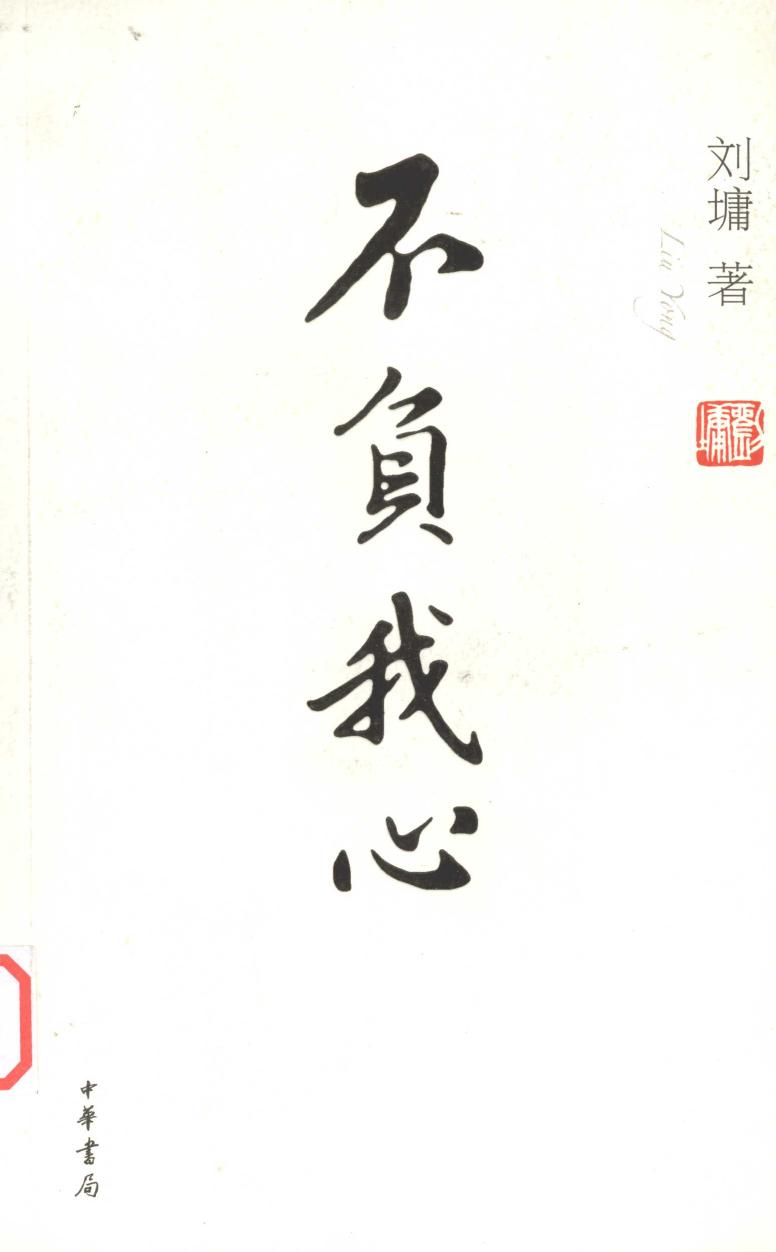 刘墉 著
Liu Yong
劉墉
不負我心
中華書局